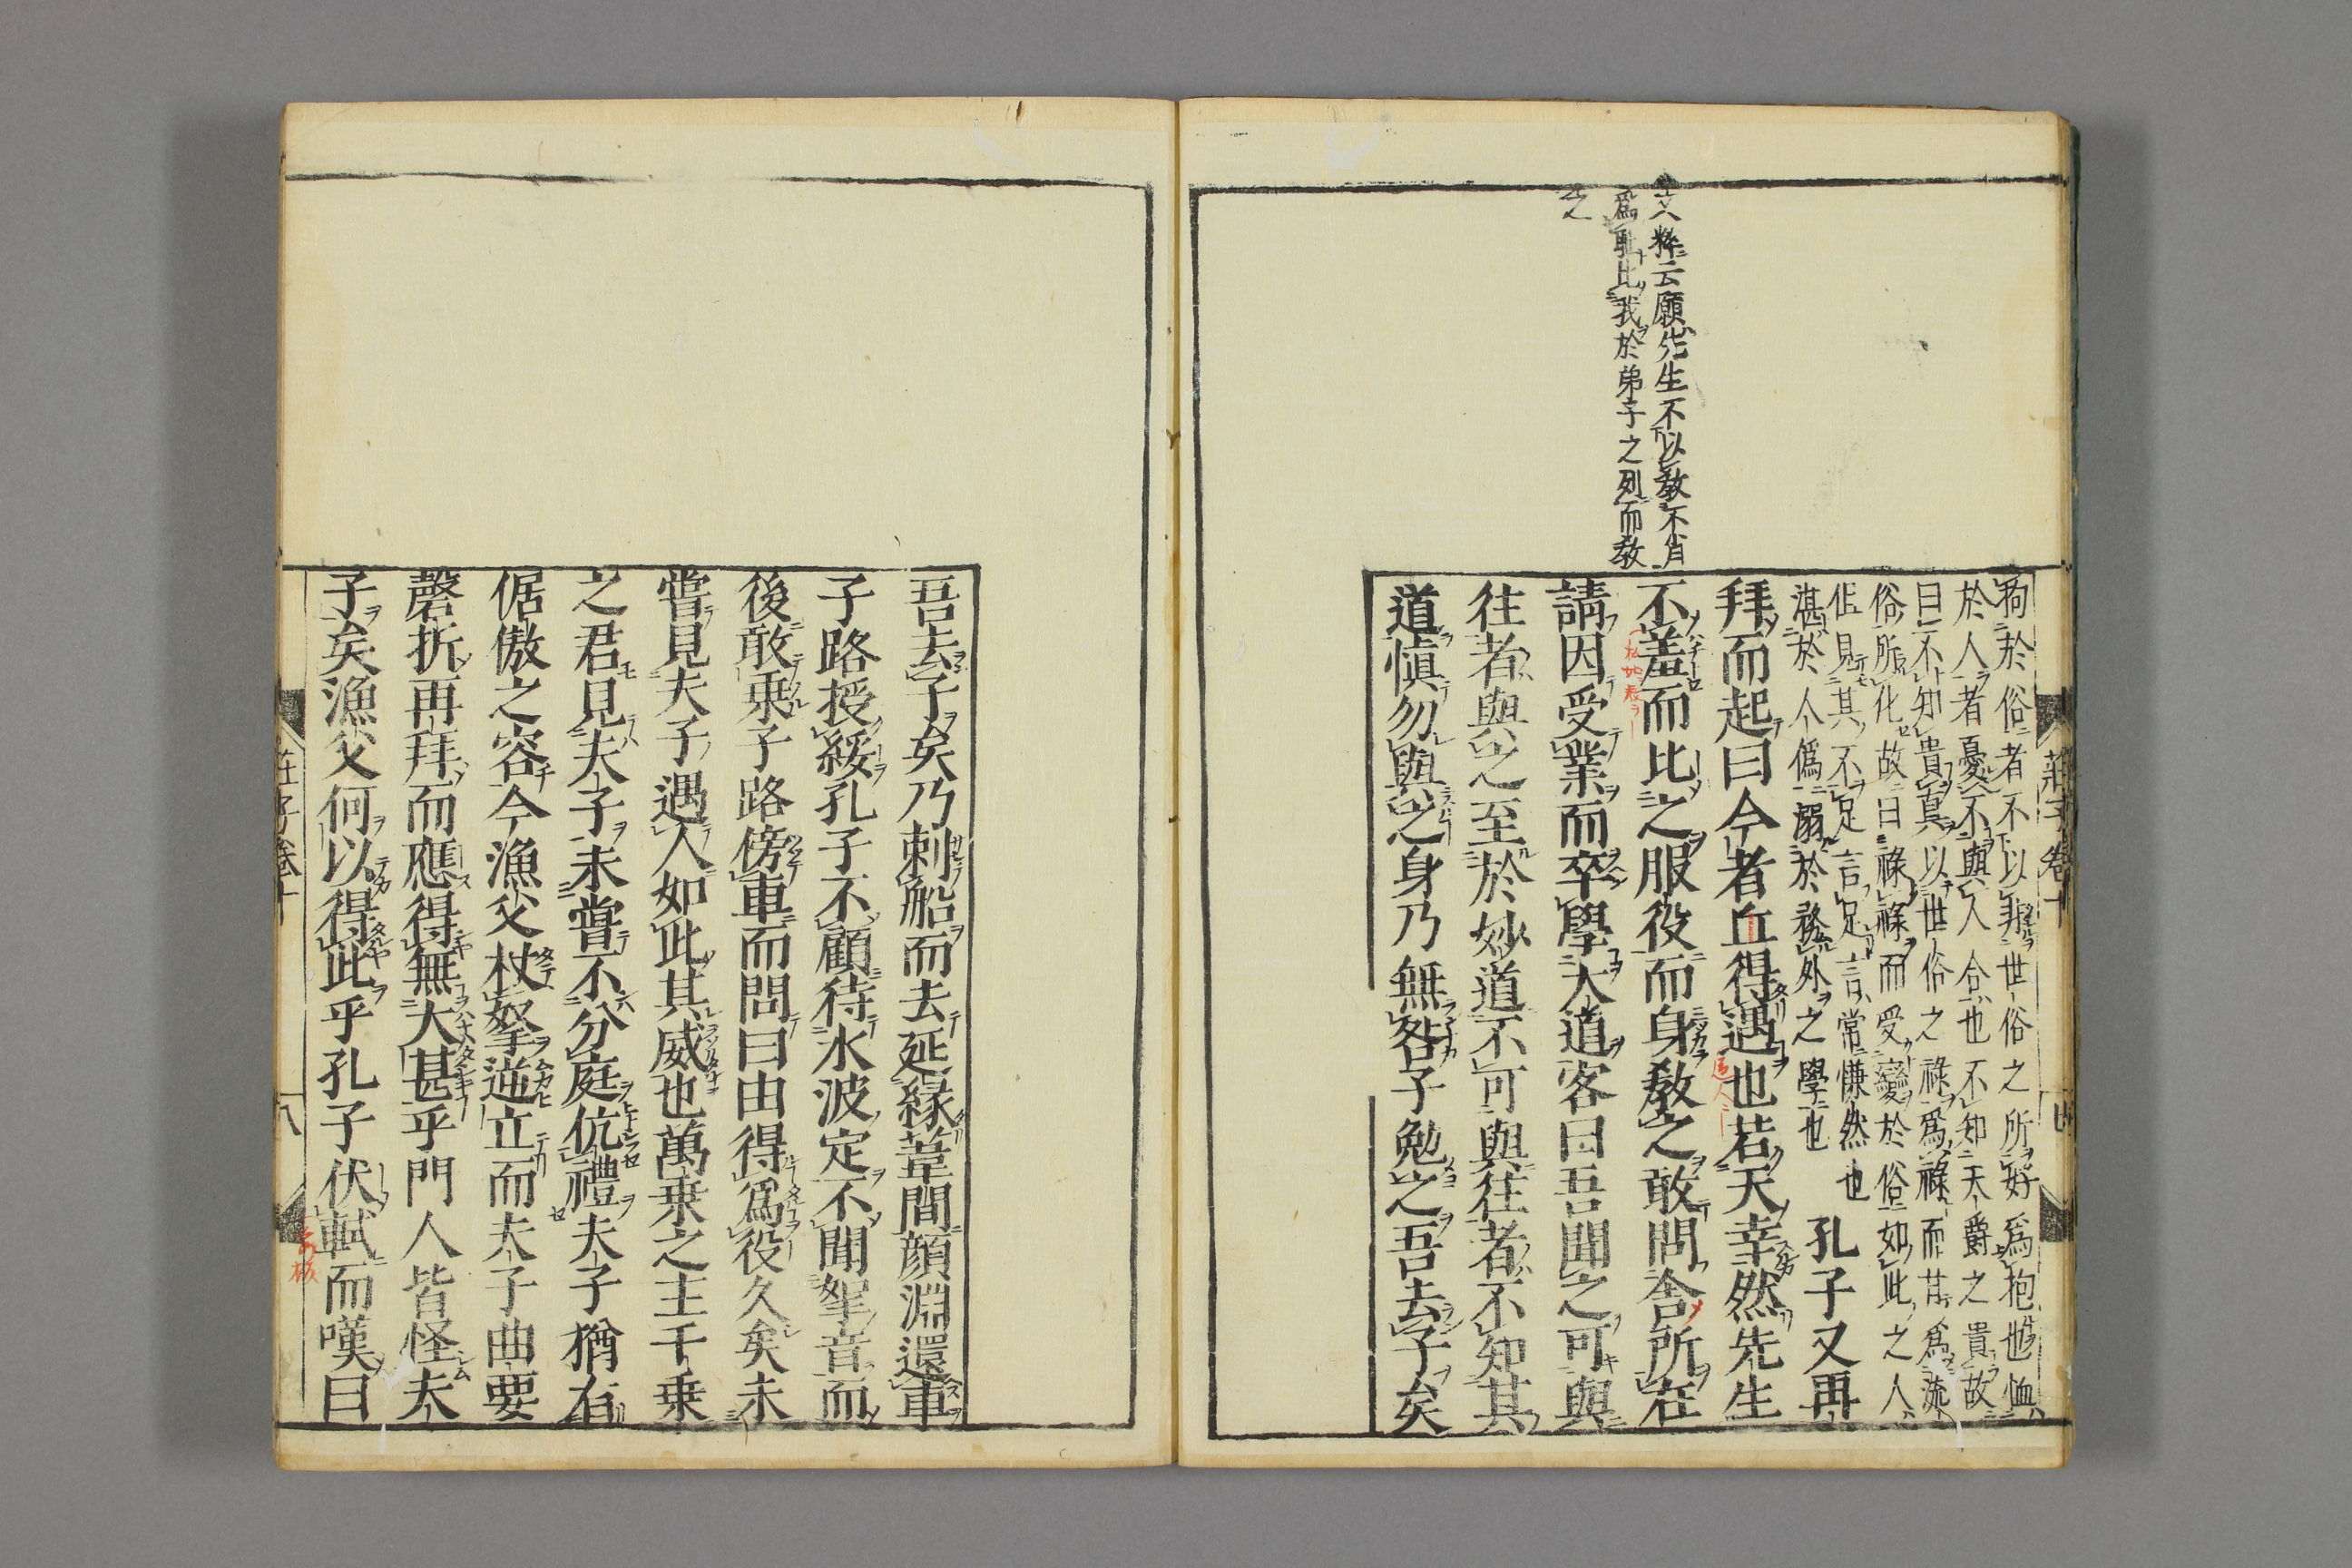 文粹云願先生不以教不肖
爲耻比我於弟子之列而教
之
莊子卷十
狥於俗者不以非世俗之所好爲抱也恤
於人者憂不與人合也不知天爵之貴故
曰不知貴眞以世俗之祿爲祿而甘爲流
俗所化故曰祿祿而受變於俗如此之人
但見其不足言足言常慊然也
湛於人僞溺於務外之學也
孔子又再
拜而起曰今者丘得遇也若天幸然先生
不羞而比之服役而身敎之敢問舍所在
請因受業而卒學大道客曰吾聞之可與
往者與之至於妙道不可與往者不知其
道愼勿與之身乃無咎子勉之吾去子矣
吾去子矣乃刺船而去延緣葦間顏淵還車
子路授綏孔子不顧待水波定不聞挐音而
後敢乗子路傍車而問曰由得爲役久矣未
嘗見夫子遇人如此其威也萬乗之主千乗
之君見夫子未嘗不分庭伉禮夫子猶有
倨傲之容今漁父杖挐逆立而夫子曲要
磬折再拜而應得無大甚乎門人皆怪夫
子矣漁父何以得此乎孔子伏軾而嘆曰
莊子卷十
八